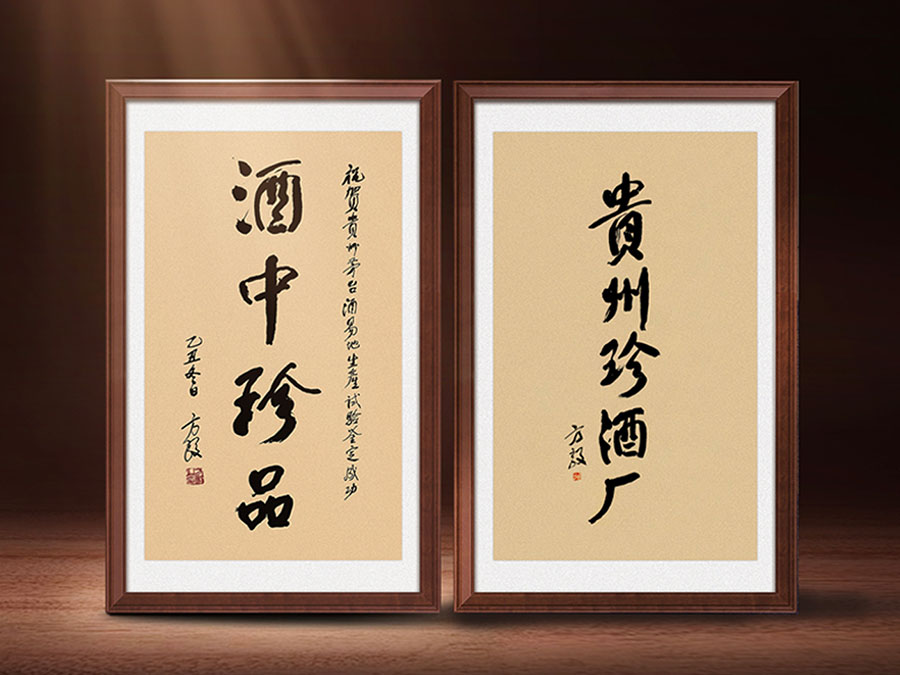 祝贺貴州茅台酒易地生產試验鉴定成功
酒中珍品
乙丑冬日 方毅
貴州珍酒厂
方毅